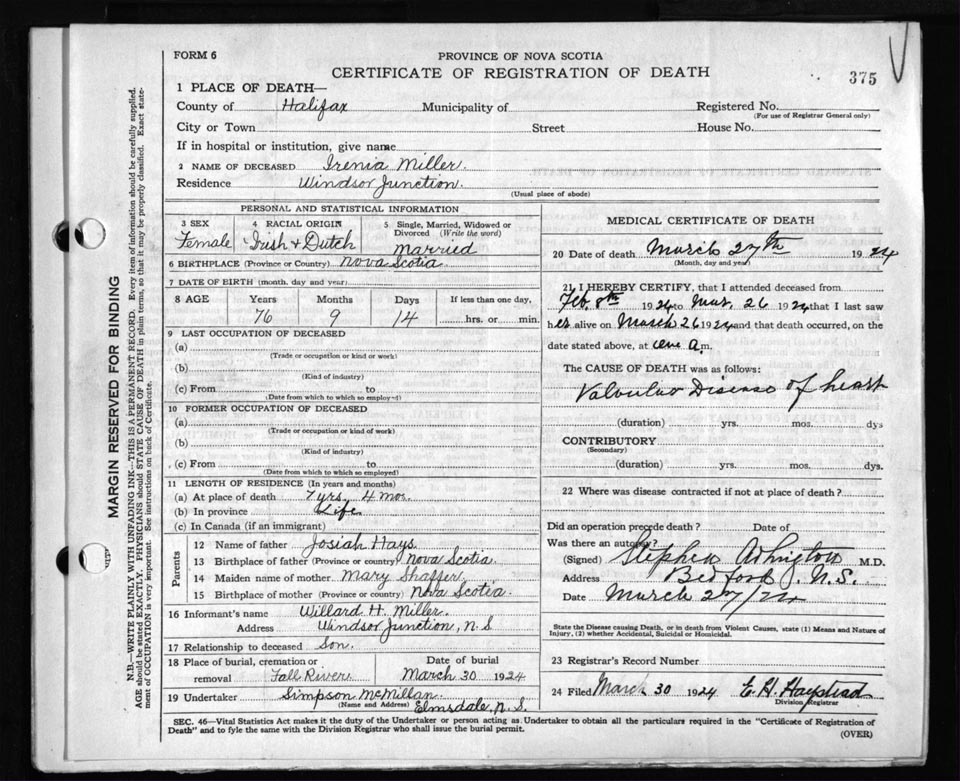 FORM 6
PROVINCE OF NOVA SCOTIA
CERTIFICATE OF REGISTRATION OF DEATH
375
1 PLACE OF DEATH—
County of Halifax Municipality of Registered No.
(For use of Registrar General only)
City or Town Street House No.
If in hospital or institution, give name
2 NAME OF DECEASED Irenia Miller.
Residence Windsor Junction.
(Usual place of abode)
PERSONAL AND STATISTICAL INFORMATION
3 SEX 4 RACIAL ORIGIN 5 Single, Married, Widowed or
Divorced (Write the word)
Female Irish & Dutch Married
6 BIRTHPLACE (Province or Country) Nova Scotia
7 DATE OF BIRTH (month, day, and year)
8 AGE Years Months Days If less than one day,
76 9 14 hrs. or min.
9 LAST OCCUPATION OF DECEASED
(a)
(Trade or occupation or kind or work)
(b)
(Kind of industry)
(c) From to
(Date from which to which so employed)
10 FORMER OCCUPATION OF DECEASED
(a)
(Trade or occupation or kind of work)
(b)
(Kind of industry)
(c) From to
(Date from which to which so employed)
11 LENGTH OF RESIDENCE (In years and months)
(a) At place of death 7 yrs. 4 mos.
(b) In province Life
(c) In Canada (if an immigrant)
Parents
12 Name of father Josiah Hays.
13 Birthplace of father (Province or country) Nova Scotia
14 Maiden name of mother Mary Shaffer.
15 Birthplace of mother (Province or country) Nova Scotia.
16 Informant's name Willard H. Miller.
Address Windsor Junction, N.S
17 Relationship to deceased Son.
18 Place of burial, cremation or Date of burial
removal Fall River March 30 1924
19 Undertaker Simpson McMillan.
(Name and Address) Elmsdale, N.S.
MEDICAL CERTIFICATE OF DEATH
20 Date of death March 27th 1924
(Month, day and year)
21 I HEREBY CERTIFY, that I attended deceased from
Feb. 8th 1924 to Mar. 26 1924 that I last saw
her alive on March 26 1924 and that death occurred, on the
date stated above, at one a.m.
The CAUSE OF DEATH was as follows:
Valvular Disease of heart
(duration) yrs. mos. dys
CONTRIBUTORY
(Secondary)
(duration) yrs. mos. dys.
22 Where was disease contracted if not at place of death?
Did an operation precede death? Date of
Was there an autopsy?
(Signed) Stephen M.D.
Address Bedford, N.S.
Date March 27/24
State the Disease causing Death, or in death from Violent Causes, state (1) Means and Nature of
Injury, (2) whether Accidental, Suicidal or Homicidal.
23 Registrar's Record Number
24 Filed March 30 1924 E. H.
Division Registrar
SEC. 46—Vital Statistics Act makes it the duty of the Undertaker or person acting as Undertaker to obtain all the particulars required in the "Certificate of Registration of
Death" and to fyle the same with the Division Registrar who shall issue the burial permit.
(OVER)
MARGIN RESERVED FOR BINDING
N.B.—WRITE PLAINLY WITH UNFADING INK—THIS IS A PERMANENT RECORD. Every item of information should be carefully supplied.
AGE should be stated EXACTLY. PHYSICIANS should STATE CAUSE OF DEATH in plain terms, so that it may be properly classified. Exact state-
ment of OCCUPATION is very important. See instructions on back of Certificate.